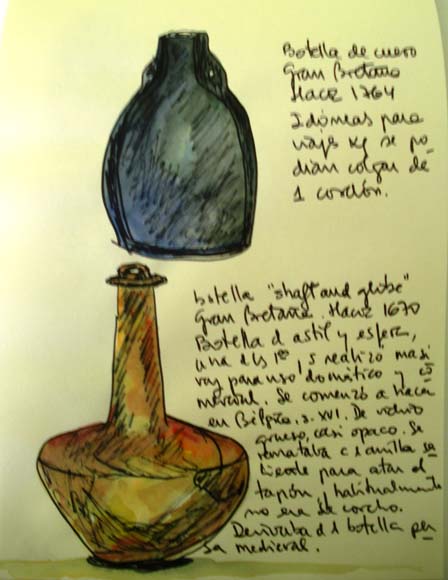 Botella de cuero
Gran Bretaña
Hacia 1764
Idóneas para
viaje xq se po-
dían colgar de
1 cordón.
botella "shaft and globe"
Gran Bretaña. Hacia 1670
Botella d astil y esfera,
una d ls 1as q s realizó masi
va/ para uso doméstico y co
mercial. Se comenzó a hacer
en Bélgica, s. XVI. De vidrio
grueso, casi opaco. Se
remataba c 1 anilla sa
liente para atar el
tapón, habitualmente
no era de corcho.
Derivaba d 1 botella per
sa medieval.